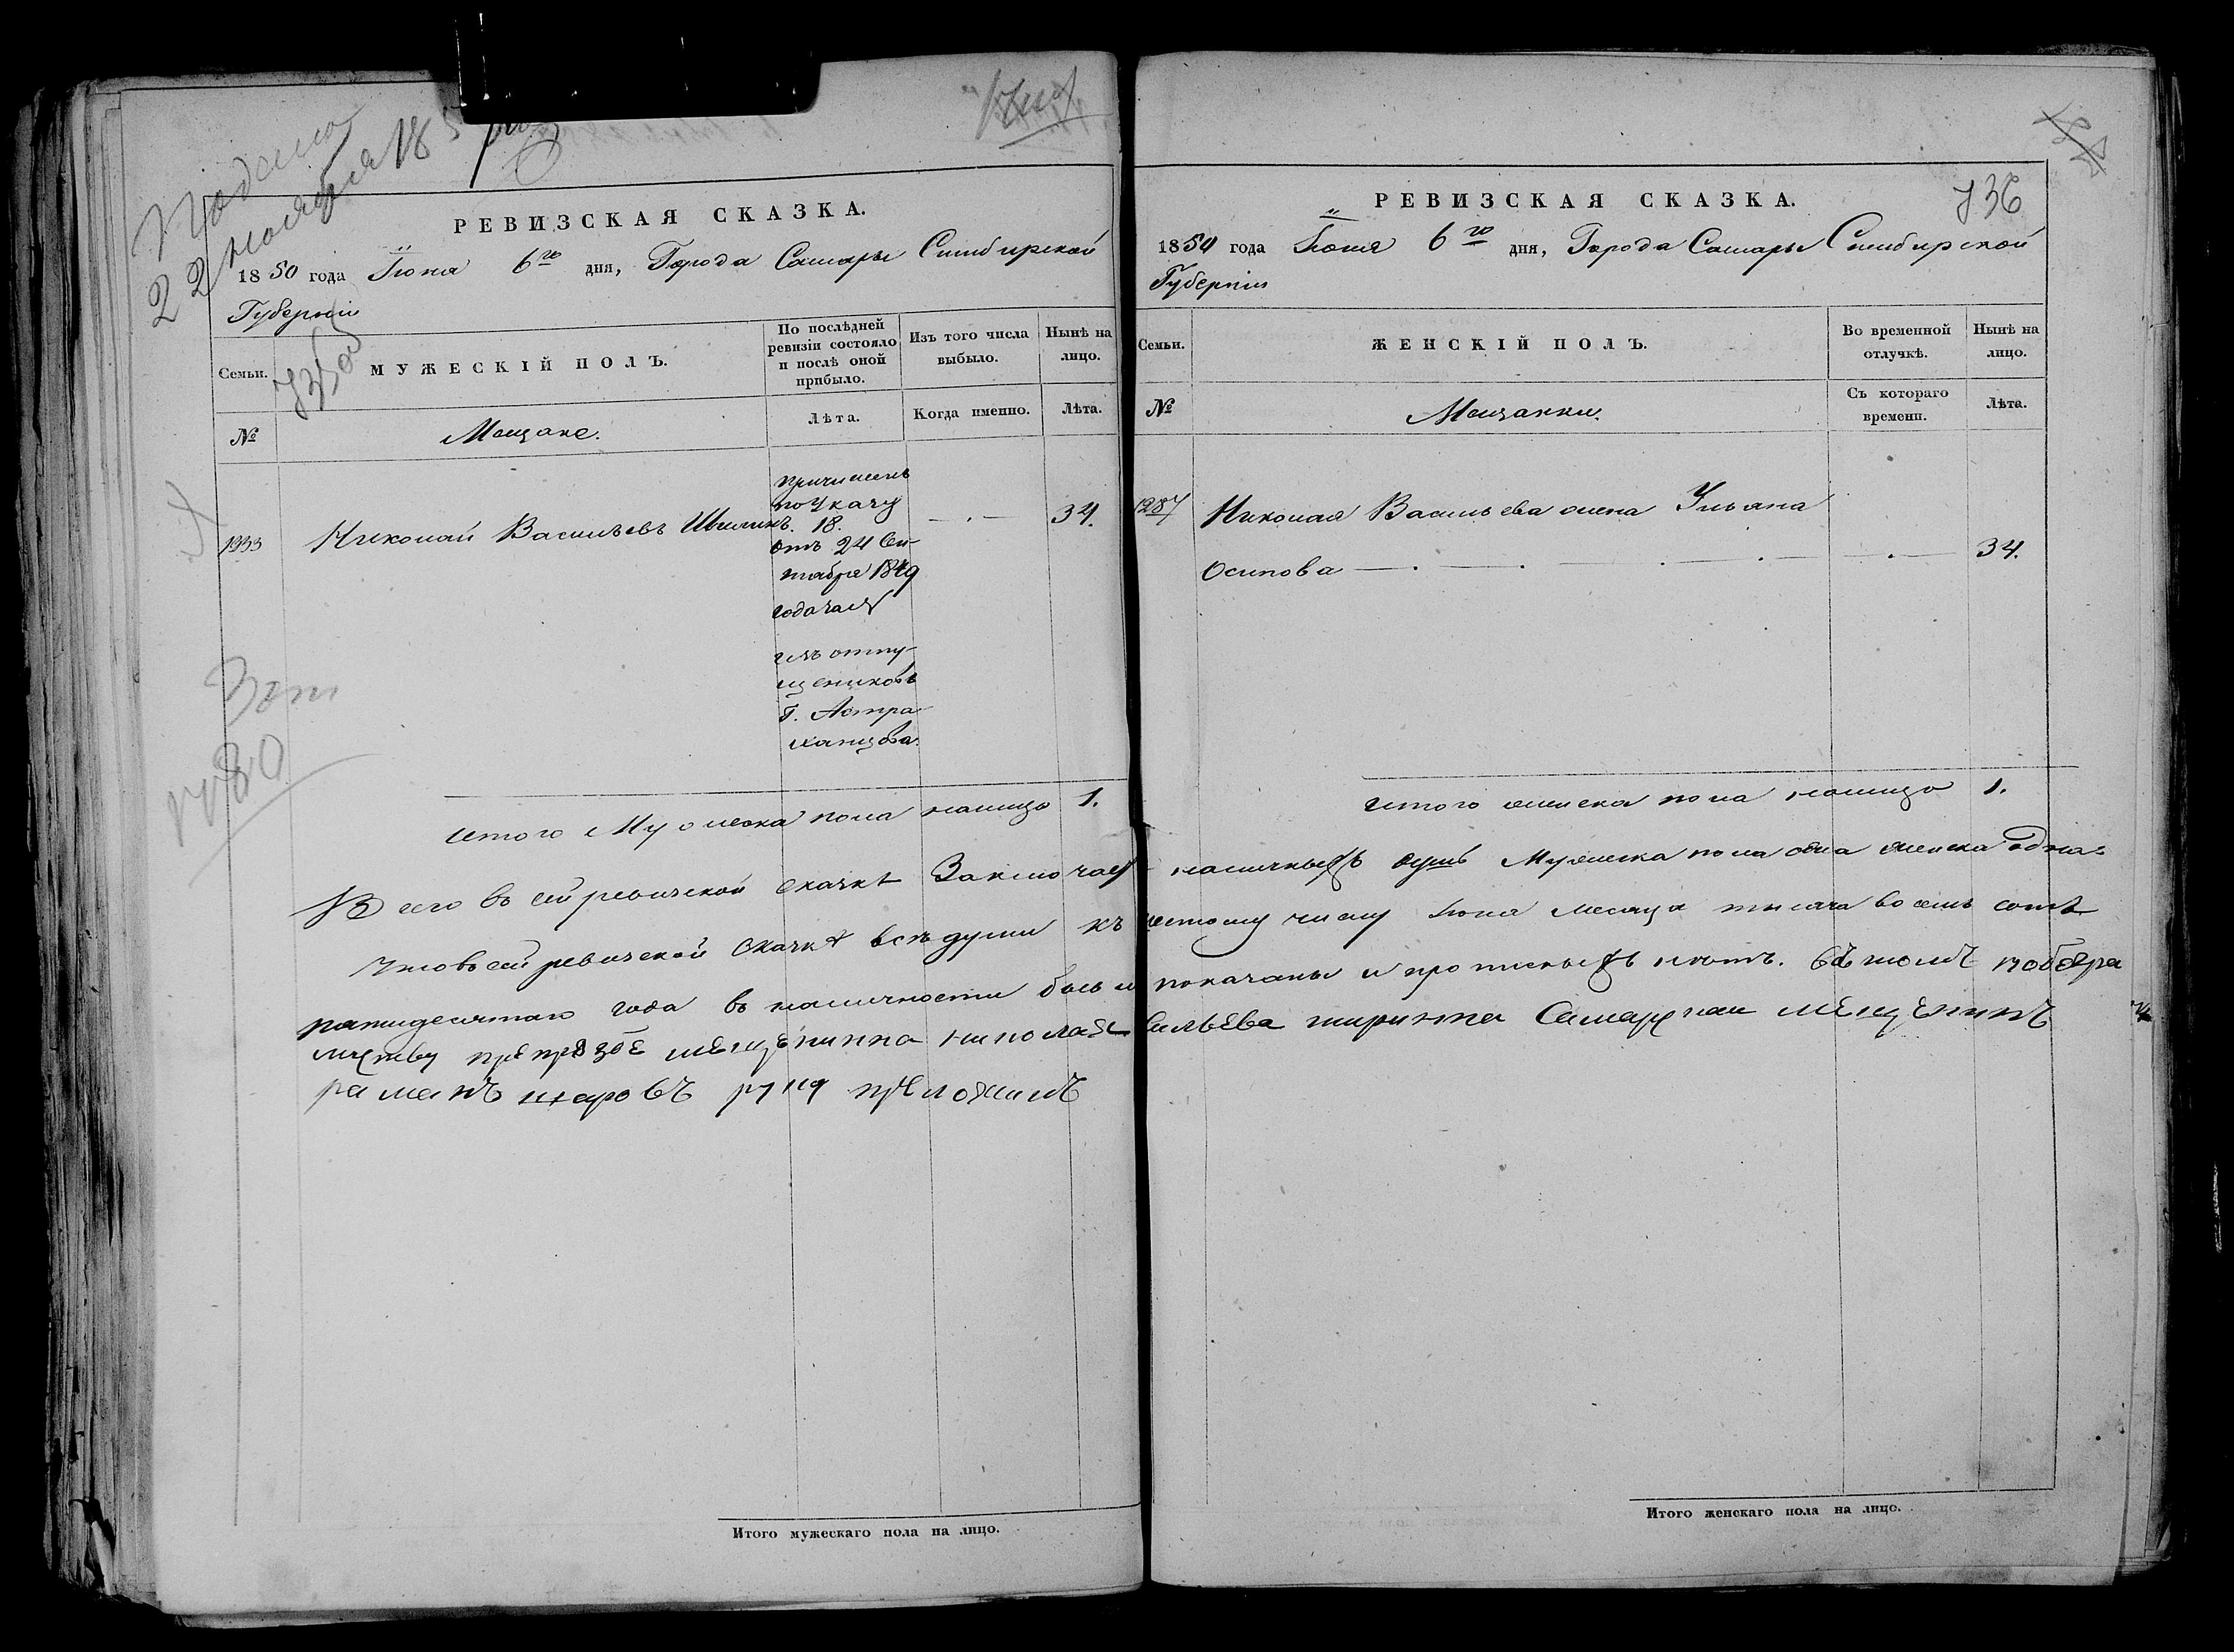 Подана
22 ноября 185
РЕВИЗСКАЯ СКАЗКА.
1850 года Іюня 6го дня, Города Самары Симбирской
Губерніи
Семьи.
МУЖЕСКІЙ ПОЛЪ.
По послѣдней ревизіи состояло и послѣ оной прибыло.
Изъ того числа выбыло.
Нынѣ на лицо.
№
Мещане.
Лѣта.
Когда именно.
Лѣта.
1233
Николай Васильевъ
причисленъ
по Указу
18.
отъ 24 Сен-
тября 1849
года за №
изъ отпу-
щениковъ
Г. Астра-
ханцова.
34.
итого Мужеска пола налицо 1.
РЕВИЗСКАЯ СКАЗКА.
736
1850 года Іюня 6го дня, Города Самары Симбирской
Губерніи
Семьи.
ЖЕНСКІЙ ПОЛЪ.
Во временной отлучкѣ.
Нынѣ на лицо.
№
Мещанки.
Съ котораго времени.
Лѣта.
1287
Николая Васильева жена Ульяна
Осипова
34.
итого женска пола налицо 1.
Всего въ сей ревизской сказкѣ Заключает наличныхъ душъ Мужеска пола одна женска одна
Что въ сей ревизской сказкѣ всѣ души къ шестому числу Іюня месяца тысяча восемь сотъ
пятидесятаго года въ наличности были показаны и прописныхъ нѣтъ. въ томъ
мещенина николая Васильева Самарскаи мещенинъ
раманъ руку приложилъ
Итого мужескаго пола на лицо.
Итого женскаго пола на лицо.